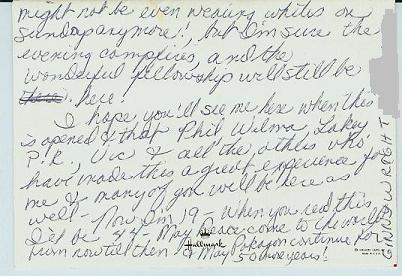 might not be even wearing whites on
Sunday anymore!, but I'm sure the
evening campfires, and the
wonderful fellowship will still be
here!
I hope you'll see me here when this
is opened & that Phil, Wilma, Lakey
P.R., Vic & all the others who
have made this a great experience for
me & many of you will be here as
well - Now I'm 19 - When you read this,
I'll be 44 - May Peace come to the world
from now til then & May Pokagon continue for
50 more years!
Hallmark
GINNY WRIGHT